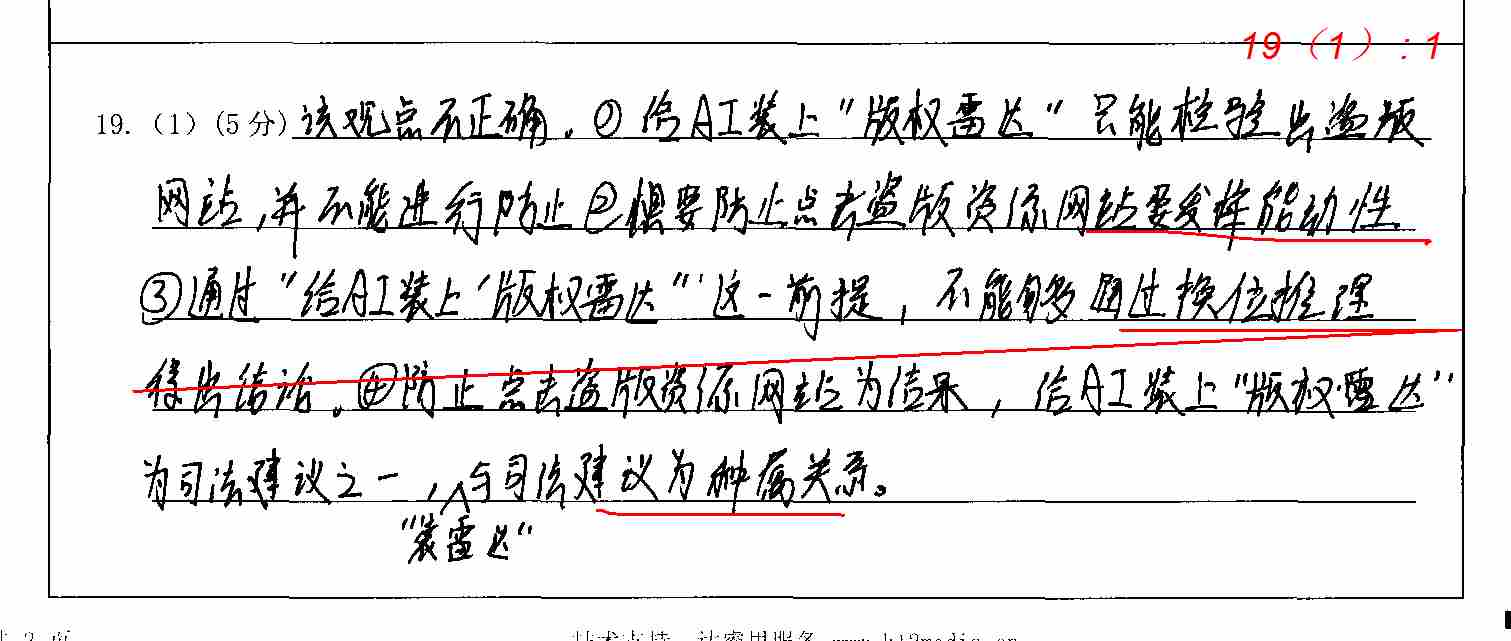 19（1）:1
19.（1）(5分) 该观点不正确。① 给AI装上"版权雷达"只能检验出盗版
网站,并不能进行防止②想要防止点击盗版资源网站要发挥能动性
③通过"给AI装上'版权雷达'"这一前提，不能够通过换位推理
得出结论。④防止点击盗版资源网站为结果，给AI装上"版权雷达"
为司法建议之一，与司法建议为种属关系。
"装雷达"
2 页
技术支持
www.